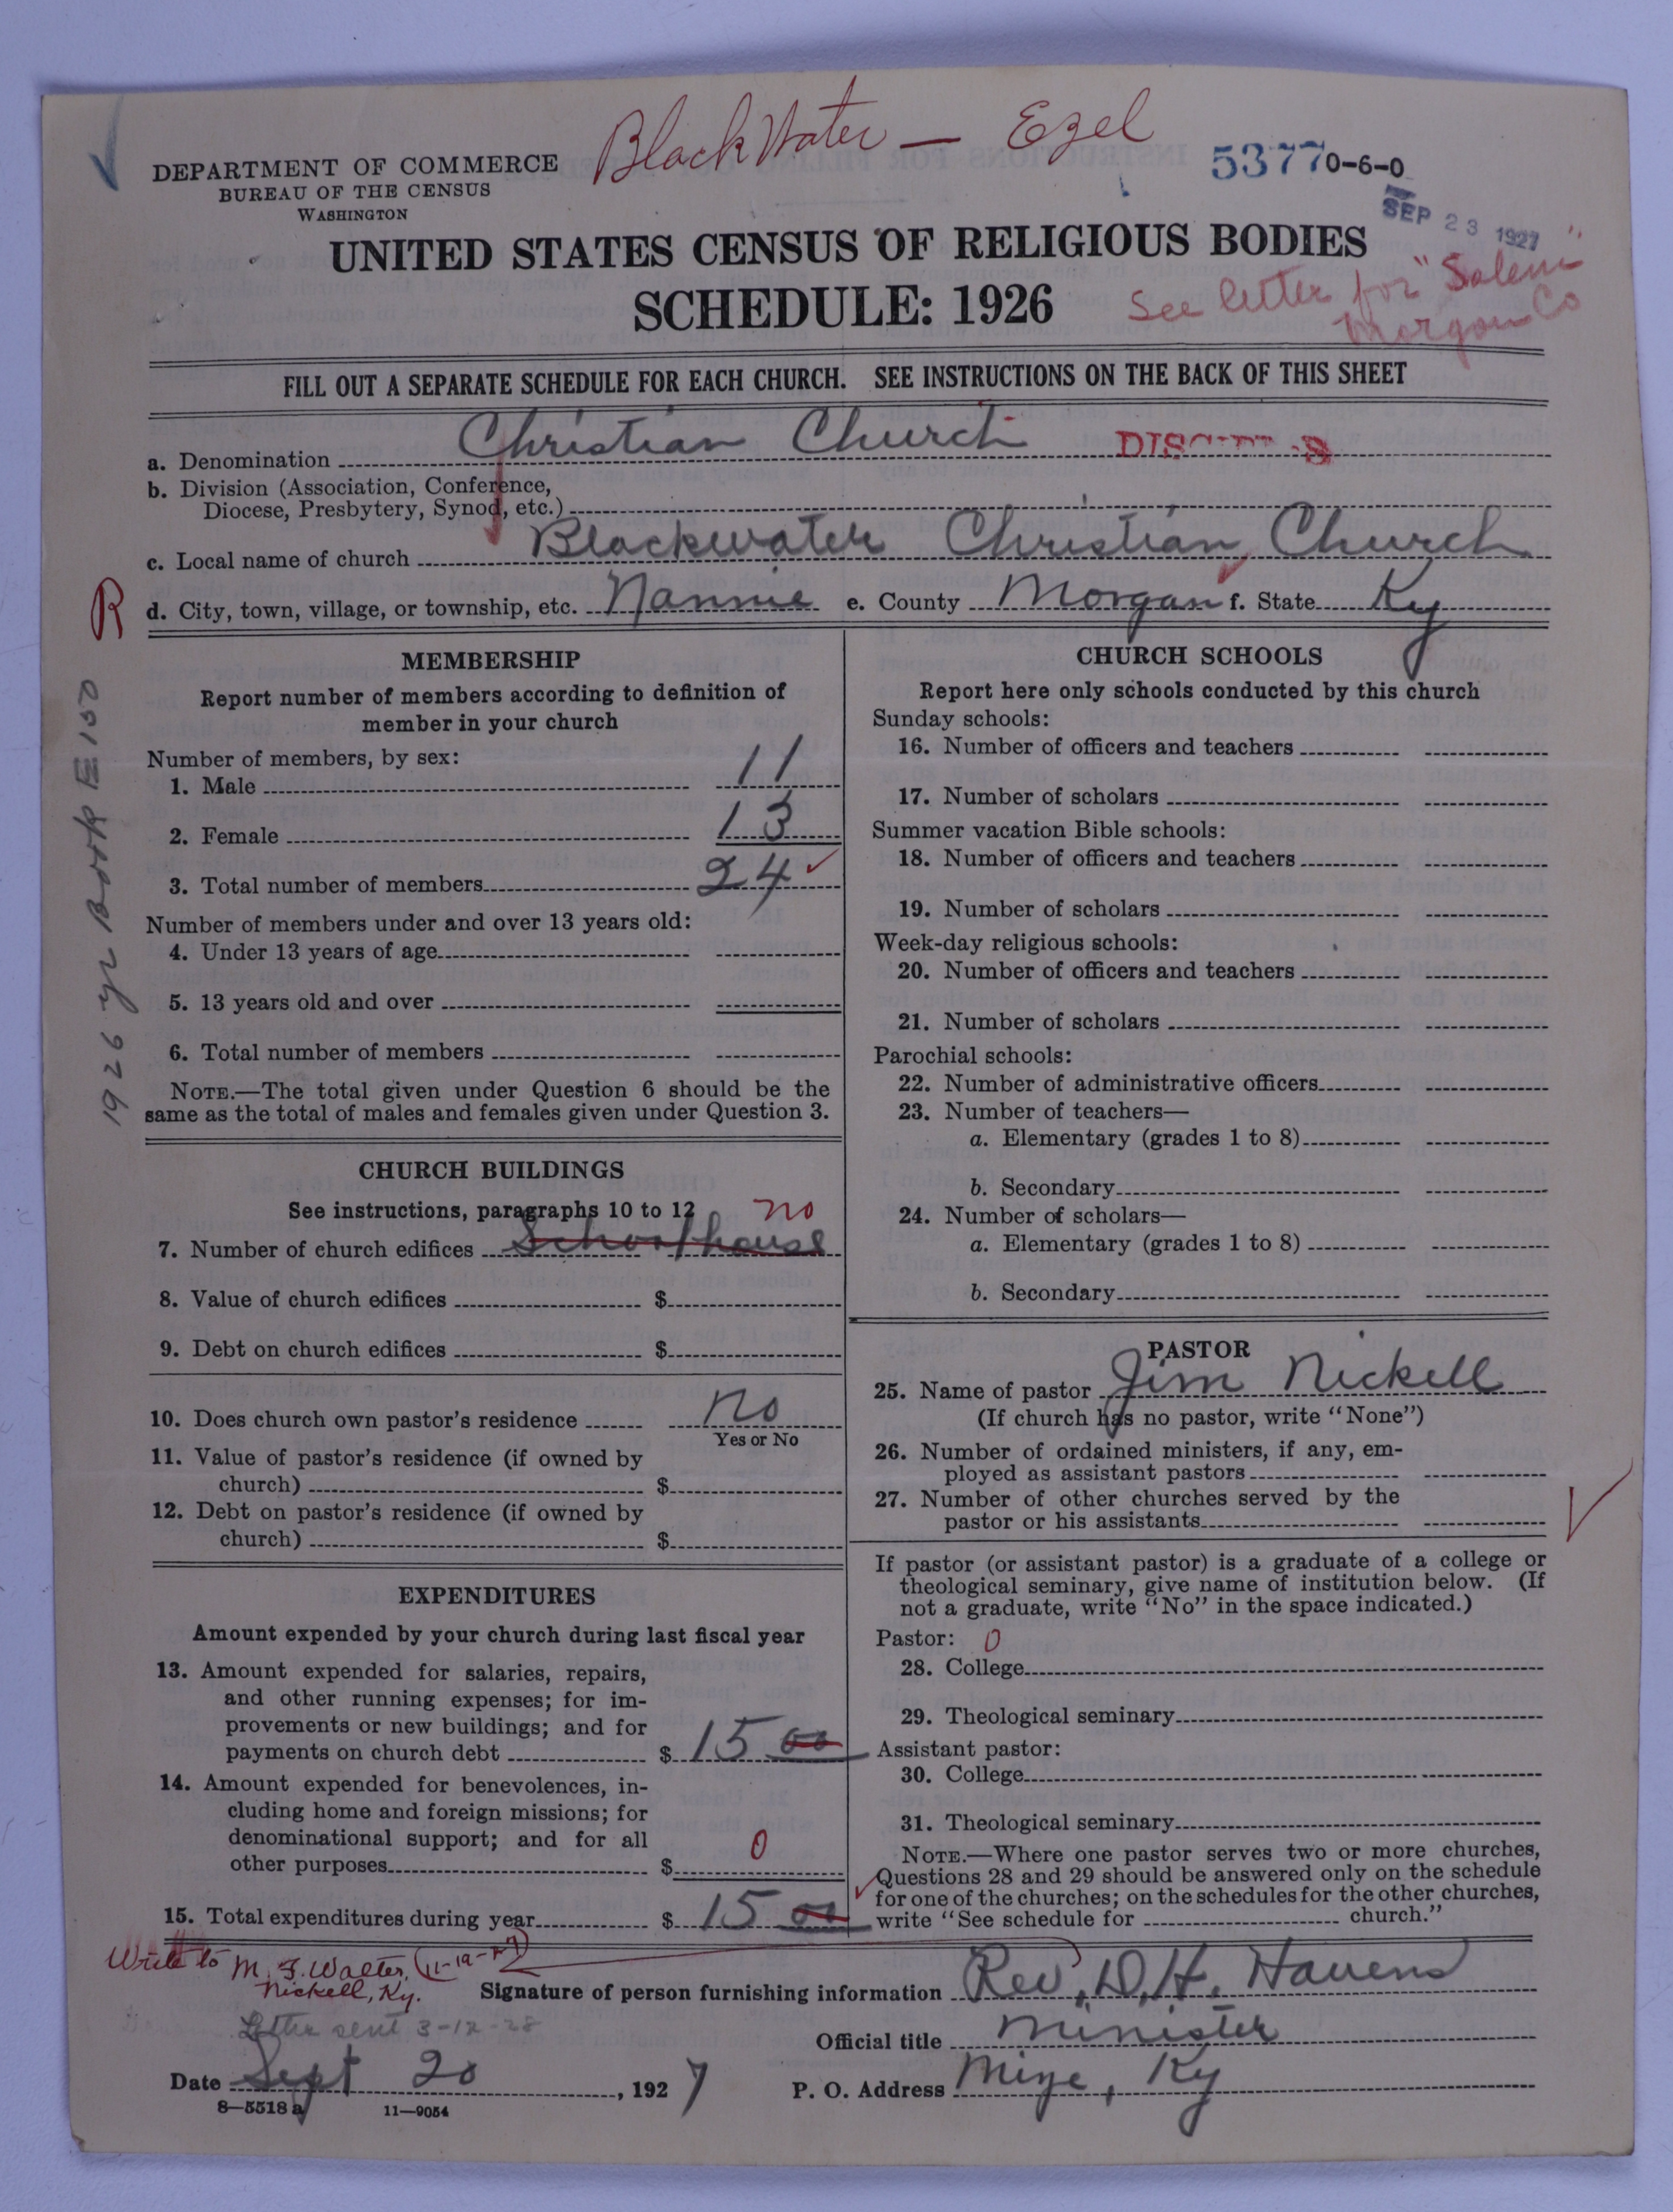 Blackwater — Ezel
DEPARTMENT OF COMMERCE
BUREAU OF THE CENSUS
WASHINGTON
53770-6-0
SEP 23 1927
UNITED STATES CENSUS OF RELIGIOUS BODIES
SCHEDULE: 1926
See letter for "Salem"
Morgan Co
FILL OUT A SEPARATE SCHEDULE FOR EACH CHURCH. SEE INSTRUCTIONS ON THE BACK OF THIS SHEET
a. Denomination Christian Church
b. Division (Association, Conference,
Diocese, Presbytery, Synod, etc.)
c. Local name of church Blackwater Christian Church
R
d. City, town, village, or township, etc. Nannie e. County Morgan f. State Ky
1926 yr Book E 150
MEMBERSHIP
Report number of members according to definition of
member in your church
Number of members, by sex:
1. Male 11
2. Female 13
3. Total number of members 24
Number of members under and over 13 years old:
4. Under 13 years of age
5. 13 years old and over
6. Total number of members
NOTE.—The total given under Question 6 should be the
same as the total of males and females given under Question 3.
CHURCH BUILDINGS
See instructions, paragraphs 10 to 12 no
7. Number of church edifices Schoolhouse
8. Value of church edifices $
9. Debt on church edifices $
10. Does church own pastor's residence no
Yes or No
11. Value of pastor's residence (if owned by
church) $
12. Debt on pastor's residence (if owned by
church) $
EXPENDITURES
Amount expended by your church during last fiscal year
13. Amount expended for salaries, repairs,
and other running expenses; for im-
provements or new buildings; and for
payments on church debt $ 15 00
14. Amount expended for benevolences, in-
cluding home and foreign missions; for
denominational support; and for all
other purposes $ 0
15. Total expenditures during year $ 15 00
CHURCH SCHOOLS
Report here only schools conducted by this church
Sunday schools:
16. Number of officers and teachers
17. Number of scholars
Summer vacation Bible schools:
18. Number of officers and teachers
19. Number of scholars
Week-day religious schools:
20. Number of officers and teachers
21. Number of scholars
Parochial schools:
22. Number of administrative officers
23. Number of teachers—
a. Elementary (grades 1 to 8)
b. Secondary
24. Number of scholars—
a. Elementary (grades 1 to 8)
b. Secondary
PASTOR
25. Name of pastor Jim Nickell
(If church has no pastor, write "None")
26. Number of ordained ministers, if any, em-
ployed as assistant pastors
27. Number of other churches served by the
pastor or his assistants
If pastor (or assistant pastor) is a graduate of a college or
theological seminary, give name of institution below. (If
not a graduate, write "No" in the space indicated.)
Pastor: 0
28. College
29. Theological seminary
Assistant pastor:
30. College
31. Theological seminary
NOTE.—Where one pastor serves two or more churches,
Questions 28 and 29 should be answered only on the schedule
for one of the churches; on the schedules for the other churches,
write "See schedule for church."
Write to M. F. Walter, (11-19-27)
Nickell, Ky.
Signature of person furnishing information Rev. D. H. Havens
Letter sent 3-12-28
Official title Minister
Date Sept 20, 1927
P. O. Address Mize, Ky
8—5518 a 11—9054